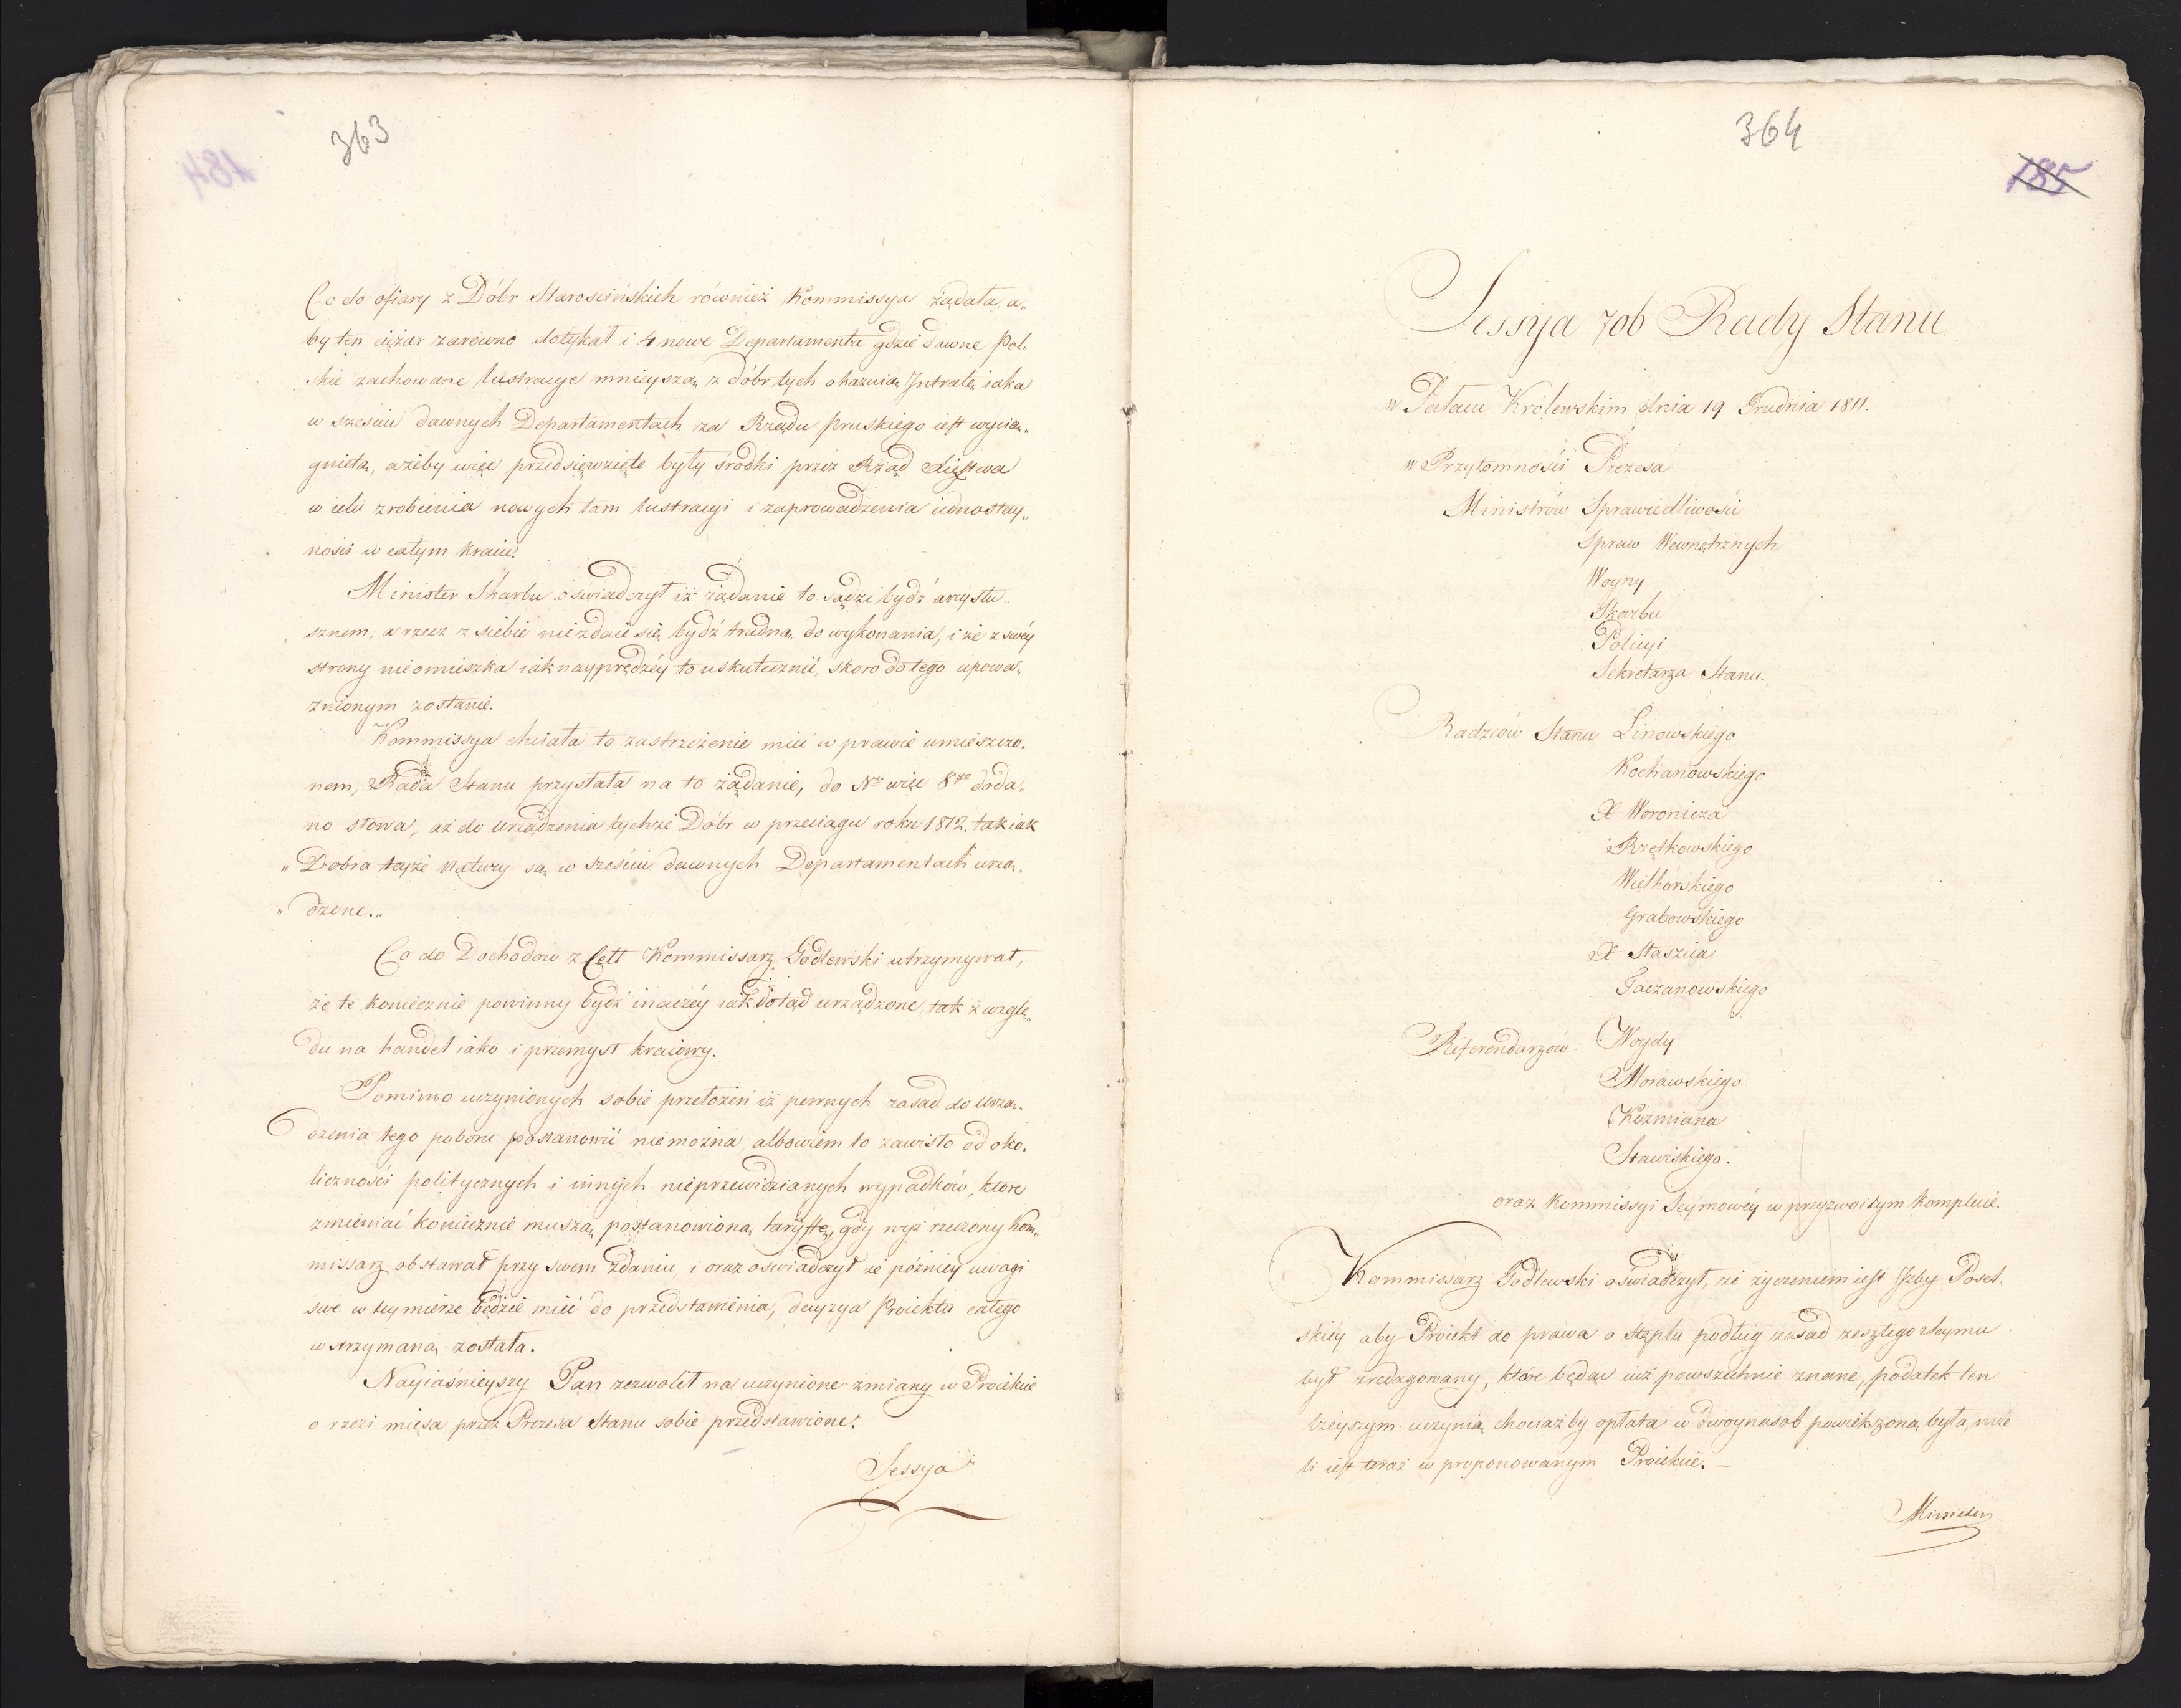 363
Co do ofiary z Dóbr Starościńskich również Kommissya żądała, a„
by ten ciężar zarówno dotykał i 4 nowe Departamenta gdzie dawne Pol„
skie zachowane lustracye mnieyszą z dóbr tych okazuią Jntratę iaka
w sześciu dawnych Departamentach za Rządu pruskiego iest wycią„
gnięta, ażeby więc przedsięwzięte były środki przez Rząd Xięstwa
w celu zrobienia nowych tam lustracyi i zaprowadzenia iednostay„
ności w całym kraiu.
Minister Skarbu oświadczył iż żądanie to sądzi bydź arcysłu„
sznem, a rzecz z siebie niezdaie się bydź trudną do wykonania, i że z swéy
strony nieomieszka iaknayprędzéy to uskutecznić, skoro do tego upowa„
żnionym zostanie.
Kommissya chciała to zastrzeżenie mieć w prawie umieszczo„
nem, Rada Stanu przystała na to żądanie, do Nru więc 8go doda„
no słowa, aż do urządzenia tychże Dóbr w przeciągu roku 1812. tak iak
„ Dobra teyże Natury są w sześciu dawnych Departamentach urzą„
„ dzone.„
Co do Dochodów z Cełł Kommissarz Godlewski utrzymywał,
że te koniecznie powinny bydź inaczéy iak dotąd urządzone, tak z wzglę„
du na handel iako i przemysł kraiowy.
Pomimo uczynionych sobie przełożeń iż pewnych zasad do urzą„
dzenia tego poboru postanowić niemożna albowiem to zawisło od oko„
liczności politycznych i innych nieprzewidzianych wypadków, które
zmieniać koniecznie muszą postanowioną taryffę, gdy wyż rzeczony Kom„
missarz obstawał przy swem zdaniu, i oraz oświadczył że późniey uwagi
swe w tey mierze będzie mieć do przedstawienia, decyzya Proiektu całego
wstrzymaną została.
Nayiaśnieyszy Pan zezwolił na uczynione zmiany w Proiekcie
o rzezi mięsa przez Prezesa Stanu sobie przedstawione.
Sessya
364
185
Sessya 706 Rady Stanu
w Pałacu Królewskim dnia 19 Grudnia 1811.
w Przytomności Prezesa
Ministrów Sprawiedliwości
Spraw Wewnętrznych
Woyny
Skarbu
Policyi
Sekretarza Stanu.
Radzców Stanu Linowskiego
Kochanowskiego
X Woronicza
Rzętkowskiego
Wielhorskiego
Grabowskiego
X Staszica
Taczanowskiego
Referendarzów: Woydy
Morawskiego
Kozmiana
Stawiskiego.
oraz Kommissyi Seymowéy w przyzwoitym Komplecie.
Kommissarz Godlewski oświadczył, że życzeniem iest Jzby Posel„
skiéy aby Proiekt do prawa o Stęplu podług zasad zeszłego Seymu
był zredagowany, które będąc iuż powszechnie znane, podatek ten
lżeyszym uczynią chociażby opłata w dwoynasób powiększoną była, niże
li iest teraz w proponowanym Proiekcie. —
Minister